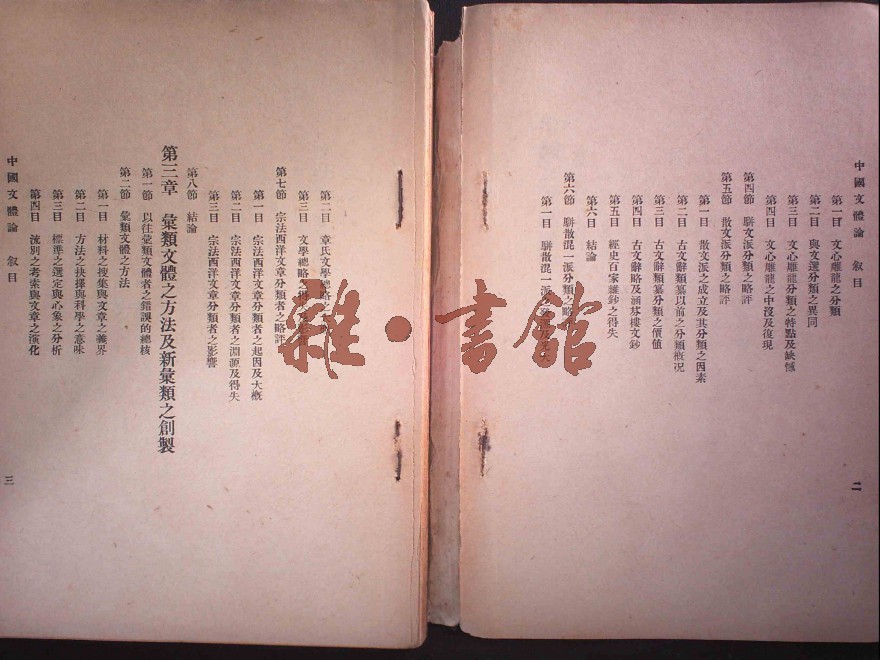 中國文體論 叙目
第一目 文心雕龍之分類
第二目 與文選分類之異同
第三目 文心雕龍分類之特點及缺憾
第四目 文心雕龍之中沒及復現
第四節 駢文派分類之略評
第五節 散文派分類之略評
第一目 散文派之成立及其分類之因素
第二目 古文辭類纂以前之分類槪況
第三目 古文辭類纂分類之價值
第四目 古文辭略及涵芬樓文鈔
第五目 經史百家雜鈔之得失
第六目 結論
第六節 駢散混一派分類之略評
第一目 駢散混一派之
二
第二目 章氏文學總略之
第三目 文學總略之得失
第七節 宗法西洋文章分類者之略評
第一目 宗法西洋文章分類者之起因及大槪
第二目 宗法西洋文章分類者之淵源及得失
第三目 宗法西洋文章分類者之影響
第八節 結論
第三章 彙類文體之方法及新彙類之創製
第一節 以往彙類文體者之錯誤的總核
第二節 彙類文體之方法
第一目 材料之搜集與文章之義界
第二目 方法之抉擇與科學之意味
第三目 標準之選定與心象之分析
第四目 流別之考索與文章之演化
中國文體論 叙目
三
雜·書館